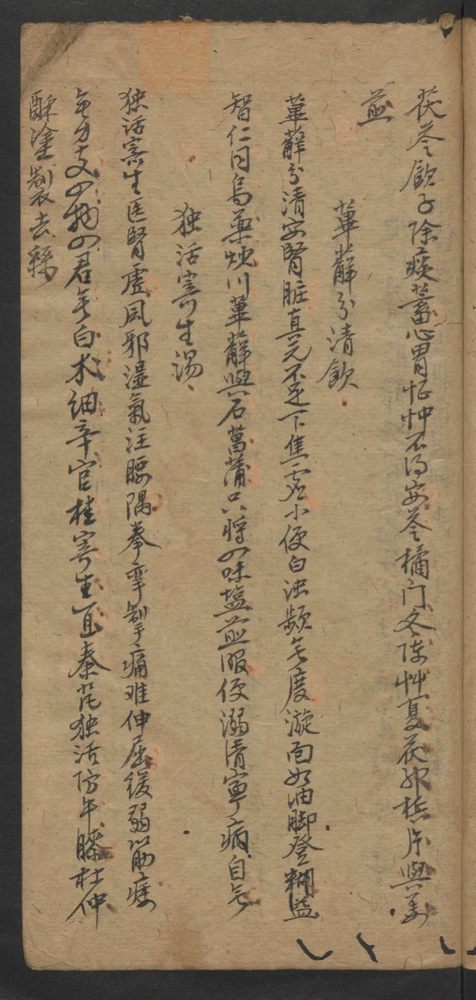 茯苓飲子除痰蓄心胃怔忡不得安苓橘门冬陈艸夏茯神槟片與姜
煎
萆薢分清飲
萆薢分清安腎脏真元不足下焦虚小便白浊频无度漩面如油脚登糊益
智仁同烏藥烧川萆薢與石菖蒲只將四味塩煎服便溺清寧病自无
独活寄生湯
独活寄生医腎虚风邪湿氣注腰隅拳挛掣痛难伸屈缓弱筋痿
无力支四物四君无白术细辛官桂寄生宜秦艽独活防牛膝杜仲
酥塗製去絲